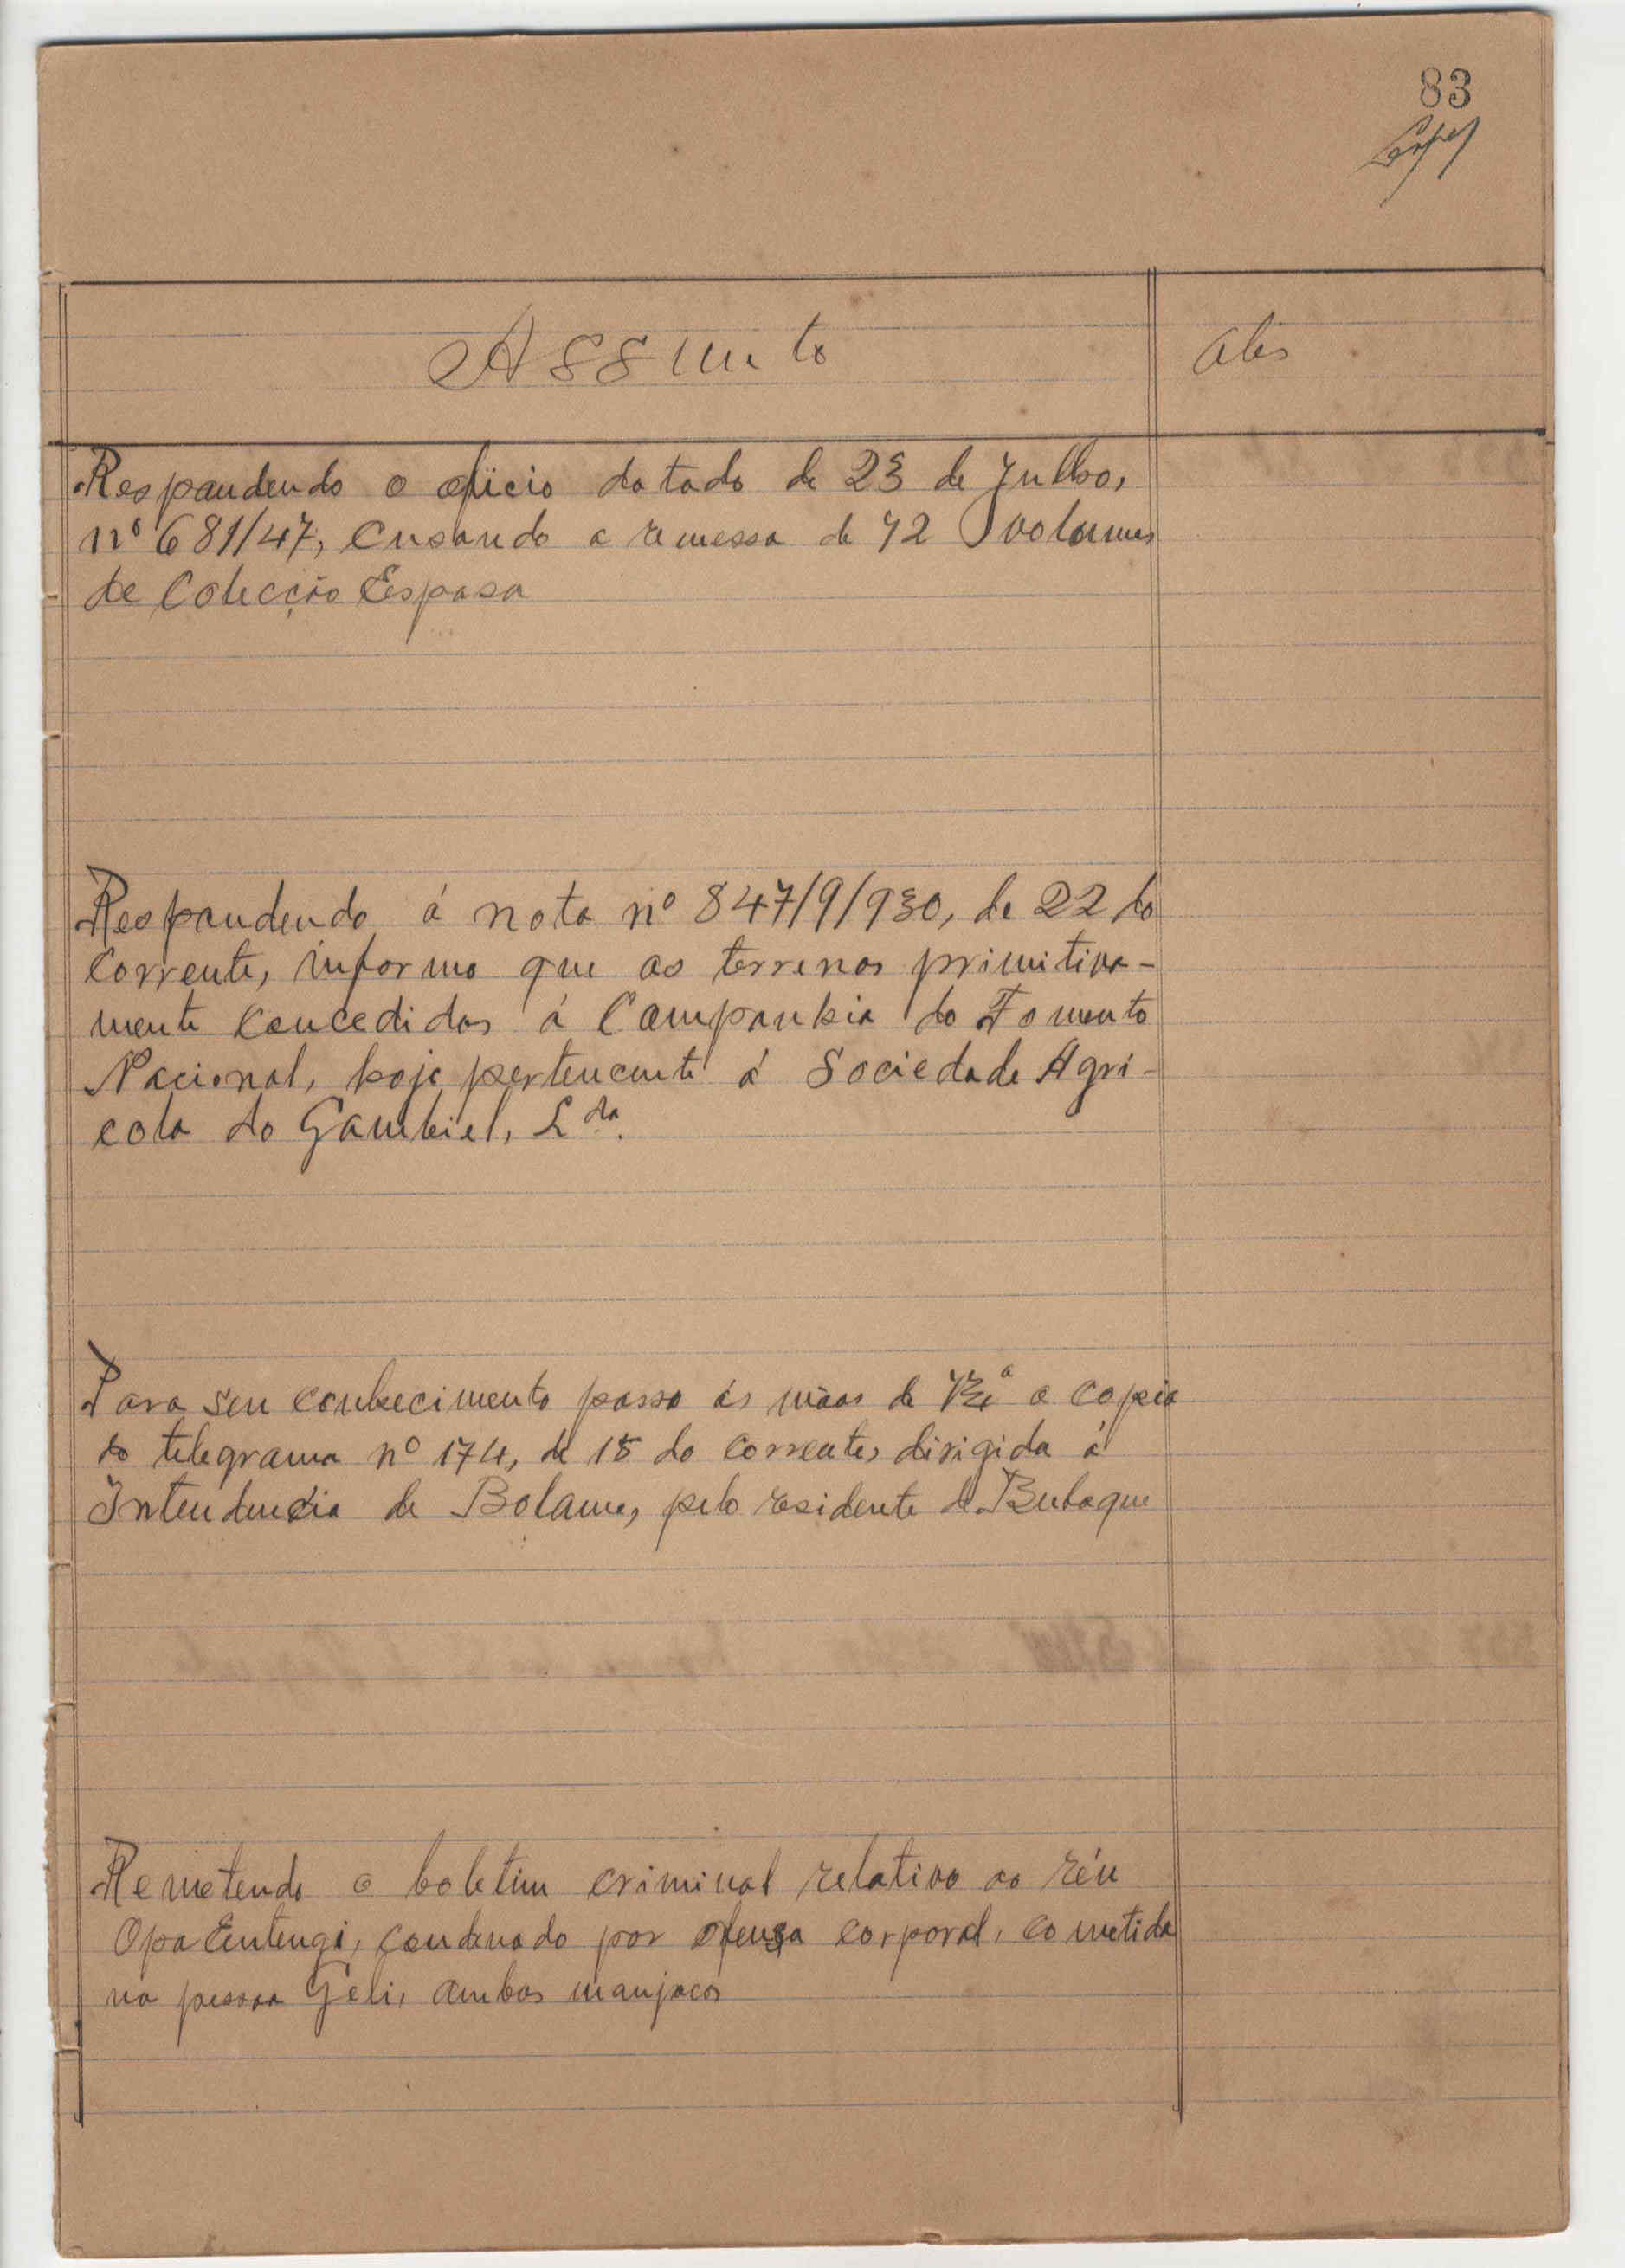 83
Assunto
Obs
Respondendo o oficio datado de 23 de Julho,
nº 681/47, cusando a remessa de 72 volumes
de Colecção Espasa
Respondendo á nota nº 847/9/930, de 22 do
corrente, informo que os terrenos primitiva-
mente concedidos á Companhia do Fomento
Nacional, hoje pertencente á Sociedade Agri-
cola do Gambiel, Lda.
Para seu conhecimento passo ás mãos de V. Exª a copia
do telegrama nº 174, de 15 do corrente, dirigida á
Intendencia de Bolama, pelo residente de Bubaque
Remetendo o boletim criminal relativo ao réu
Opa Eentengi, condenado por ofensa corporal, cometida
na pessoa Geli, ambos manjacos